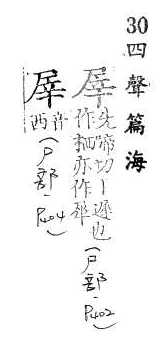 30
四聲篇海
屖
先切丨遲也
作栖亦作
(尸部.P402)
屖
音西
(尸部.P404)